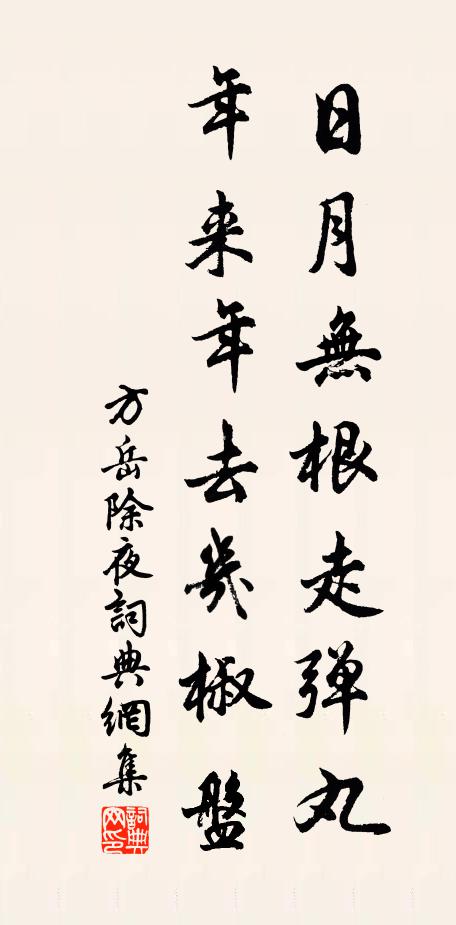 日月無根走弾丸
年来年去幾椒盤
方岳除夜詞典網集
詞典网印